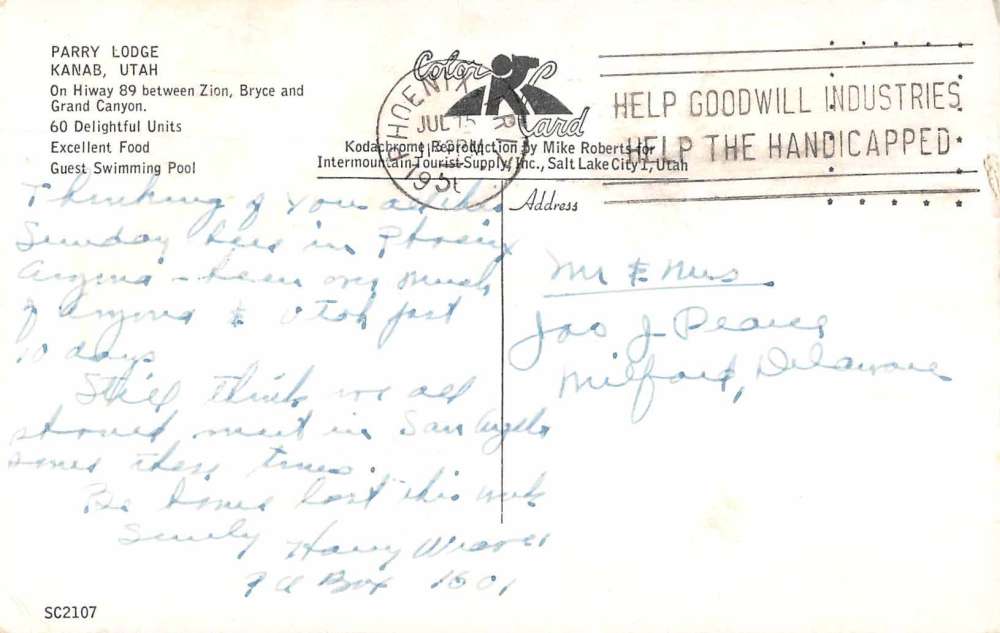 PARRY LODGE
KANAB, UTAH
On Hiway 89 between Zion, Bryce and
Grand Canyon.
60 Delightful Units
Excellent Food
Guest Swimming Pool
Color Card
Kodachrome Reproduction by Mike Roberts for
Intermountain Tourist Supply, Inc., Salt Lake City 1, Utah
PHOENIX ARIZ
JUL 15
PM
HELP GOODWILL INDUSTRIES
HELP THE HANDICAPPED
Thinking of you all this
Sunday here in Phoenix
Arizona - been over much
of Arizona & Utah past
10 days
Still think we all
should meet in San Angelo
some these times.
Be home last this week
Harry Weaver
Box 1601
Address
Mr & Mrs
Jas J Pearce
Milford, Delaware
SC2107